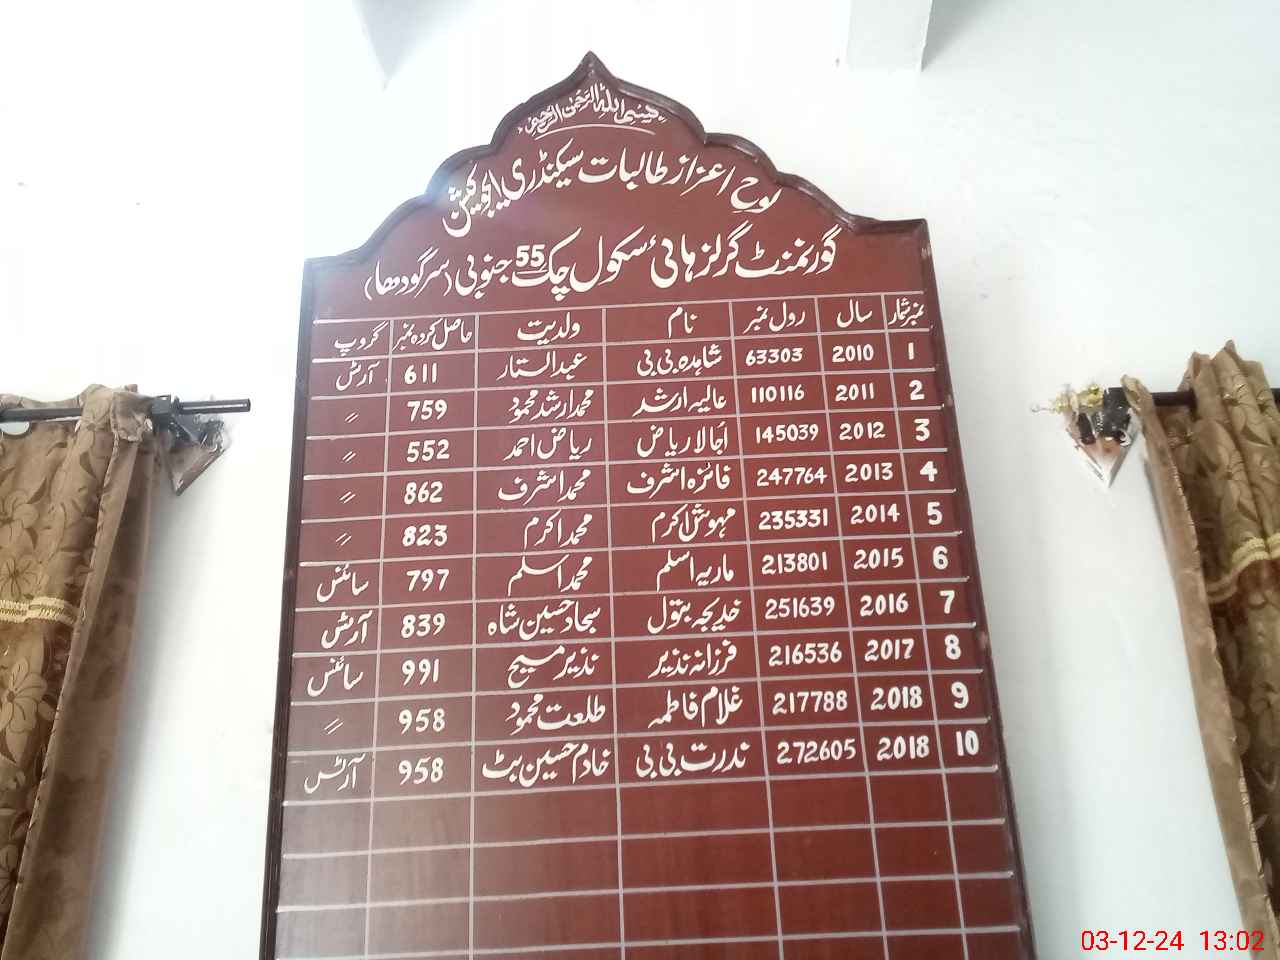 بسم اللہ الرحمٰن الرحیم
لوح اعزاز طالبات سیکنڈری ایجوکیشن
گورنمنٹ گرلز ہائی سکول چک 55 جنوبی (سرگودھا)
نمبر شمار سال رول نمبر نام ولدیت حاصل کردہ نمبر گروپ
1 2010 63303 شاہدہ بی بی عبدالستار 611 آرٹس
2 2011 110116 عالیہ ارشد محمد ارشد محمود 759 〃
3 2012 145039 اُجالا ریاض ریاض احمد 552 〃
4 2013 247764 فائزہ اشرف محمد اشرف 862 〃
5 2014 235331 مہوش اکرم محمد اکرم 823 〃
6 2015 213801 ماریہ اسلم محمد اسلم 797 سائنس
7 2016 251639 خدیجہ بتول سجاد حسین شاہ 839 آرٹس
8 2017 216536 فرزانہ نذیر نذیر مسیح 991 سائنس
9 2018 217788 غلام فاطمہ طلعت محمود 958 〃
10 2018 272605 ندرت بی بی خادم حسین بٹ 958 آرٹس
03-12-24 13:02